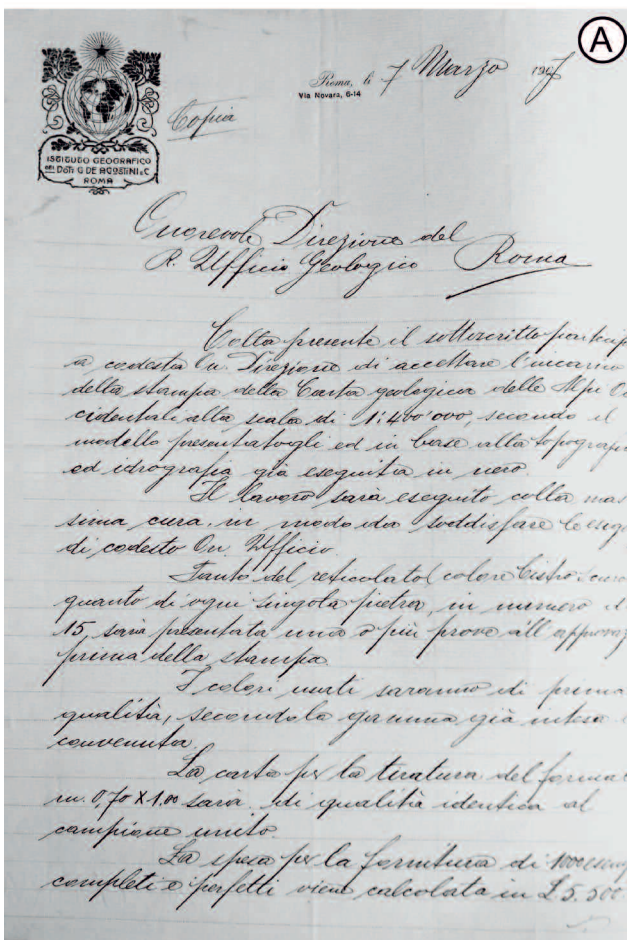 A
Roma, li 7 Marzo 1907
Via Novara, 6-14
Copia
ISTITUTO GEOGRAFICO
DEL DOTT. G. DE AGOSTINI & C.
ROMA
Onorevole Direzione del
R. Ufficio Geologico Roma
Colla presente il sottoscritto partecip
a codesta On. Direzione di accettare l'incarico
della stampa della Carta geologica delle Alpi Oc
cidentali alla scala di 1:400'000, secondo il
modello presentatogli ed in base alla topografia
ed idrografia già eseguita in nero.
Il lavoro sarà eseguito colla mas
sima cura, in modo da soddisfare le esig
di codesto On. Ufficio.
Tanto del reticolato (colore bistro scuro
quanto di ogni singola pietra, in numero d
15, sarà presentata una o più prove all'approvaz
prima della stampa.
I colori usati saranno di prima
qualità, secondo la gamma già intesa e
convenuta.
La carta per la tiratura del forma
m. 0,70 X 1,00 sarà di qualità identica al
campione unito.
La spesa per la fornitura di 1000 esemp
completi e perfetti viene calcolata in £ 5.500